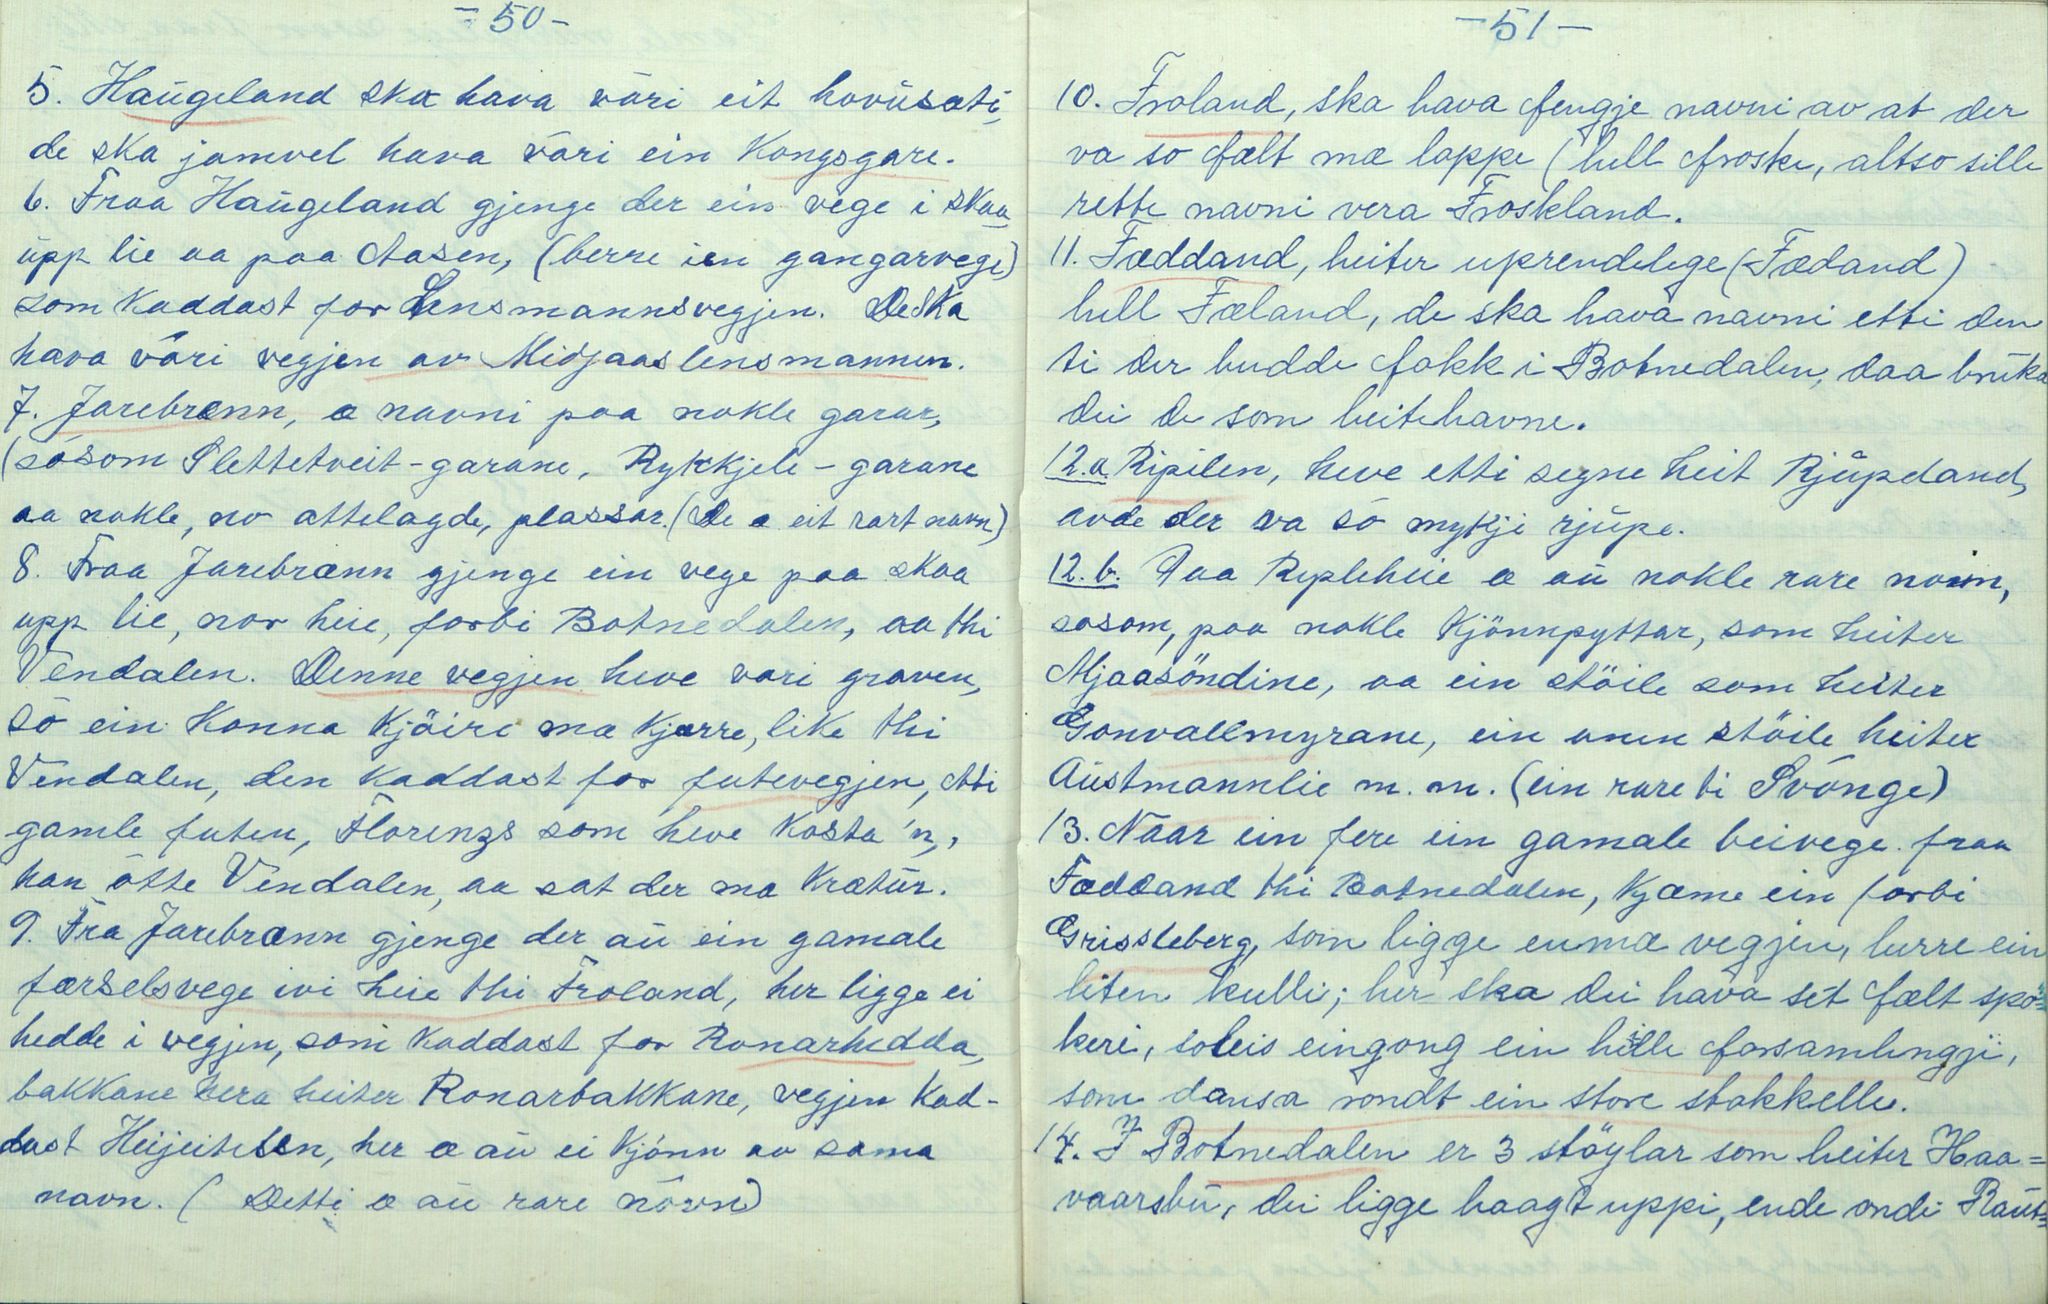 - 50 -
5. Haugeland ska hava väri eit hovüsæti,
de ska jamvel hava väri ein Kongsgare.
6. Fraa Haugeland gjenge der ein vege i skaa
üpp lie aa paa Aasen, (berre ien gangarvege)
som kaddast for Lensmannsvegjen. De ska
hava väri vegjen av Midjaaslensmannen.
7. Jarebrænn, æ navni paa nokle garar,
(sösom Slettetveit-garane, Rykkjele-garane
aa nokle, no attelagde, plassar. (De æ eit rart navn)
8. Fraa Jarebrænn gjenge ein vege paa skaa
upp lie, nor heie, forbi Botnedalen, aa thi
Vendalen. Denne vegjen heve vari graven,
sö ein konna kjöire mæ kjærre, like thi
Vendalen, den kaddast for futevegjen, etti
gamle futen, Florenzs som heve kosta 'n,
han ötte Vendalen, aa sat der mæ krætür.
9. Fra Jarebrænn gjenge der aü ein gamale
færselsvege ivi heie thi Froland, her ligge ei
hedde i vegjen, som kaddast for Ronarhedda,
bakkane hera heiter Ronarbakkane, vegjen kad-
dast Heijeitelen, her æ aü ei kjönn av sama
navn. (Detti æ aü rare növn)
- 51 -
10. Froland, ska hava fengje navni av at der
va so fælt mæ loppe (hell froske, altso sille
rette navni vera Froskland.
11. Fæddand, heiter uprendelege (Fædand)
hell Fæland, de ska hava navni etti den
ti der budde fokk i Botnedalen, daa brüka
dei de som beitehavne.
12.a. Ripilen, heve etti segne heit Rjüpdand,
avde der va sö mykji rjüpe.
12.b. Paa Ripleheie æ aü nokle rare navn,
sosom, paa nokle kjönnpyttar, som heiter
Mjaasöndine, aa ein stöile som heiter
Gonvallmyrane, ein anen stöile heiter
Aüstmannlie m.m. (ein rare ti Svönge)
13. Naar ein fere ein gamale beivege fraa
Fæddand thi Botnedalen, kjæme ein forbi
Grissleberg, som ligge enmæ vegjen, burre ein
liten kulli; her ska dei hava set fælt spö=
keri, soleis eingong ein heille forsamlingji,
som dansa rondt ein store stakkelle.
14. I Botnedalen er 3 stöylar som heiter Haa=
vaarsbü, dei ligge haagt uppi, ende ondi Raut=